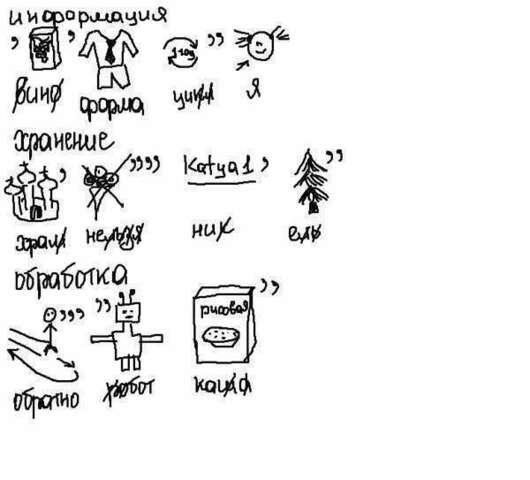 информация
1год
вино форма цикл я
хранение
Katya1
храм нельзя ник ель
обработка
рисовая
обратно робот каша